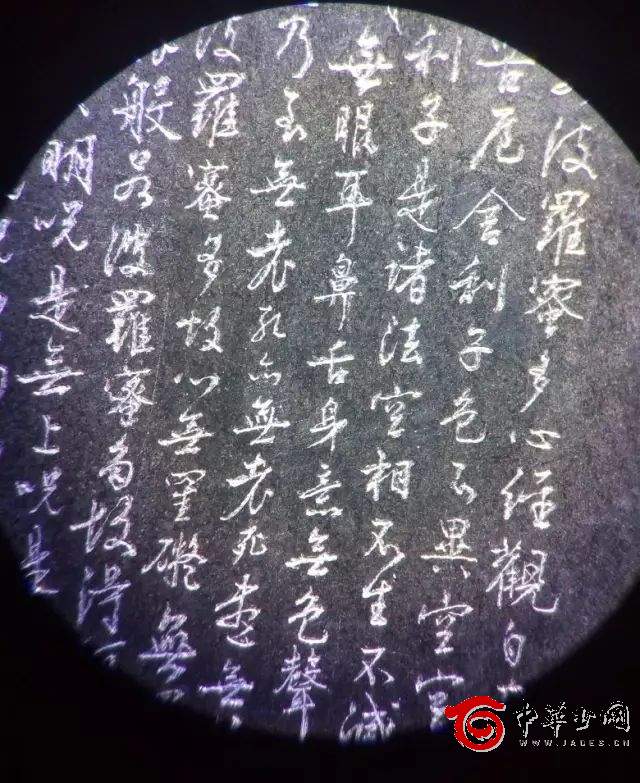 波羅蜜多心經觀自
苦厄舍利子色不異空空
利子是諸法空相不生不滅
無眼耳鼻舌身意無色聲
乃至無老死亦無老死盡無
波羅蜜多故心無罣礙無
般若波羅蜜多故得
明呪是無上呪是
中華玉网
WWW.JADES.CN